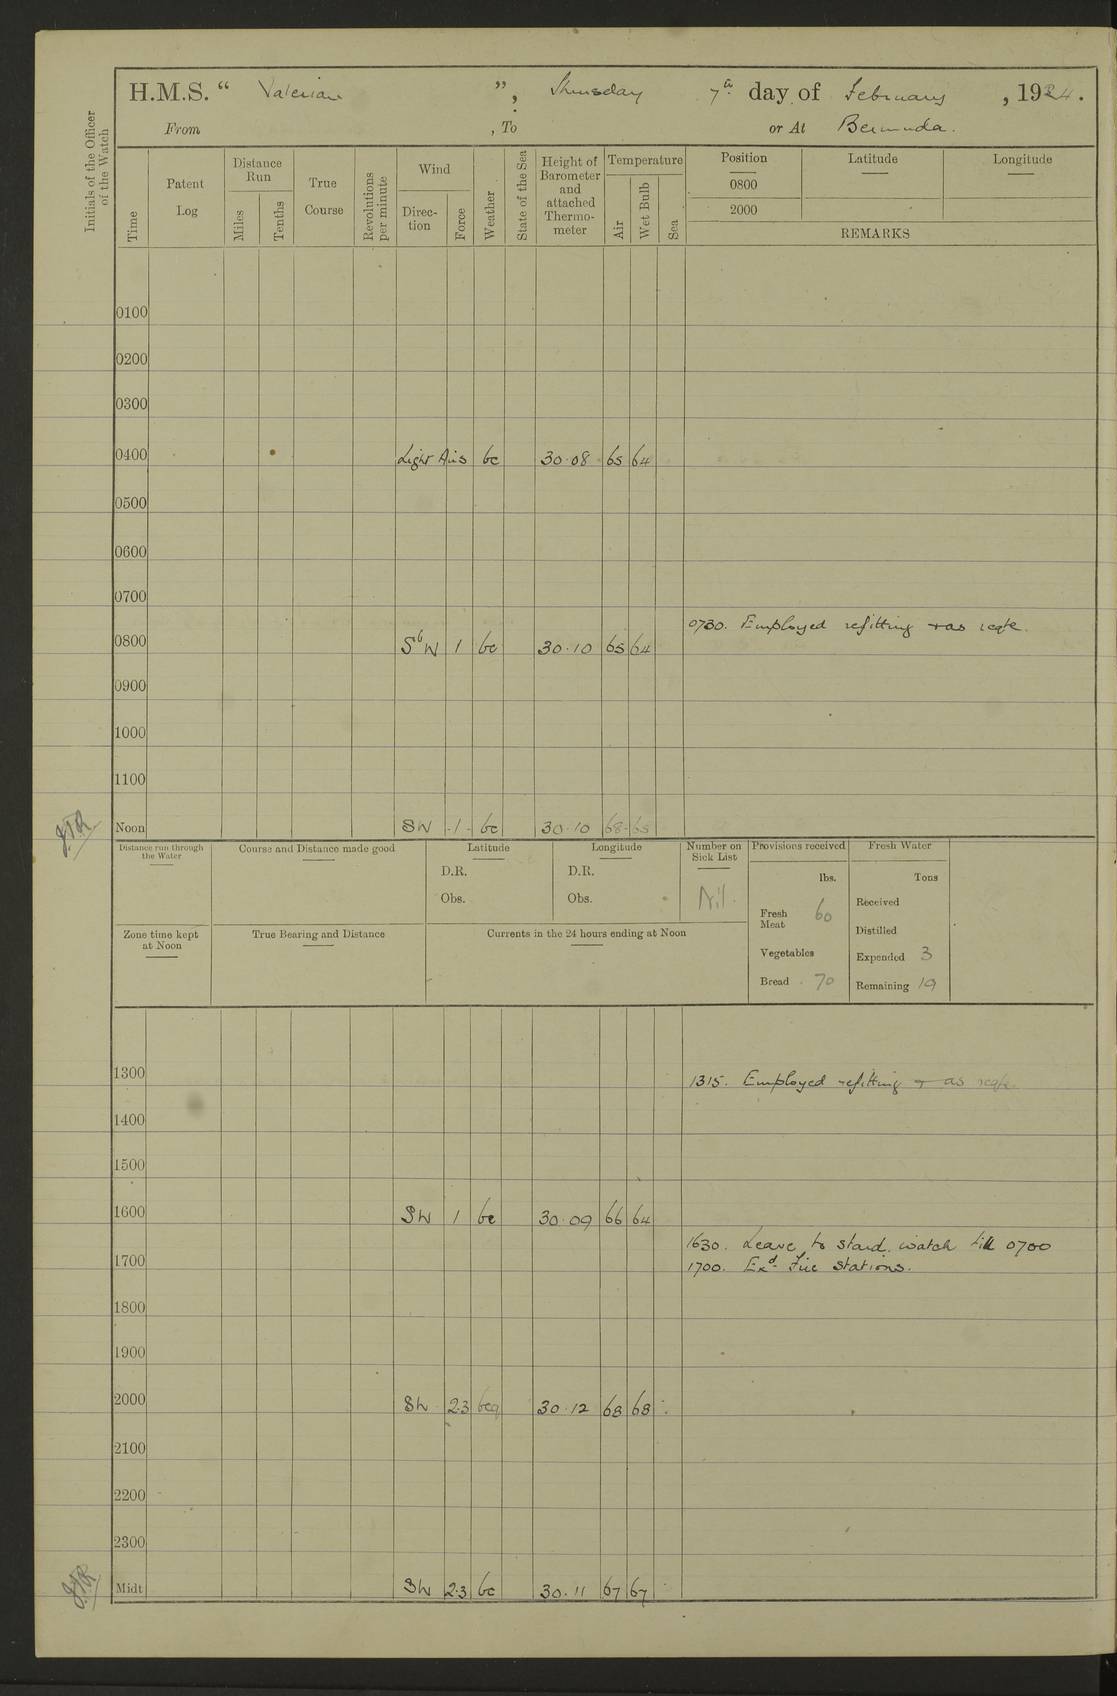 H.M.S. “ Valerian ”, Thursday 7th day of February, 1924.
From , To or At Bermuda.
Initials of the Officer of the Watch
Time
Patent Log
Distance Run
Miles
Tenths
True Course
Revolutions per minute
Wind
Direction
Force
Weather
State of the Sea
Height of Barometer and attached Thermometer
Temperature
Air
Wet Bulb
Sea
Position Latitude Longitude
0800
2000
REMARKS
0100
0200
0300
0400 Light Airs bc 30.08 65 64
0500
0600
0700
0730. Employed refitting + as reqte.
0800 SbW 1 bc 30.10 65 64
0900
1000
1100
Noon SW 1 bc 30.10 68 65
J.T.R.
Distance run through the Water
Course and Distance made good
Latitude
D.R.
Obs.
Longitude
D.R.
Obs.
Number on Sick List
Nil.
Provisions received
lbs.
Fresh Meat 60
Vegetables
Bread 70
Fresh Water
Tons
Received
Distilled
Expended 3
Remaining 19
Zone time kept at Noon
True Bearing and Distance
Currents in the 24 hours ending at Noon
1300
1315. Employed refitting + as reqte.
1400
1500
1600 SW 1 bc 30.09 66 64
1630. Leave to stard. watch till 0700
1700
1700. Exd. Fire Stations.
1800
1900
2000 SW 2.3 bcq 30.12 68 68
2100
2200
2300
Midt SW 2.3 bc 30.11 67 67
J.T.R.